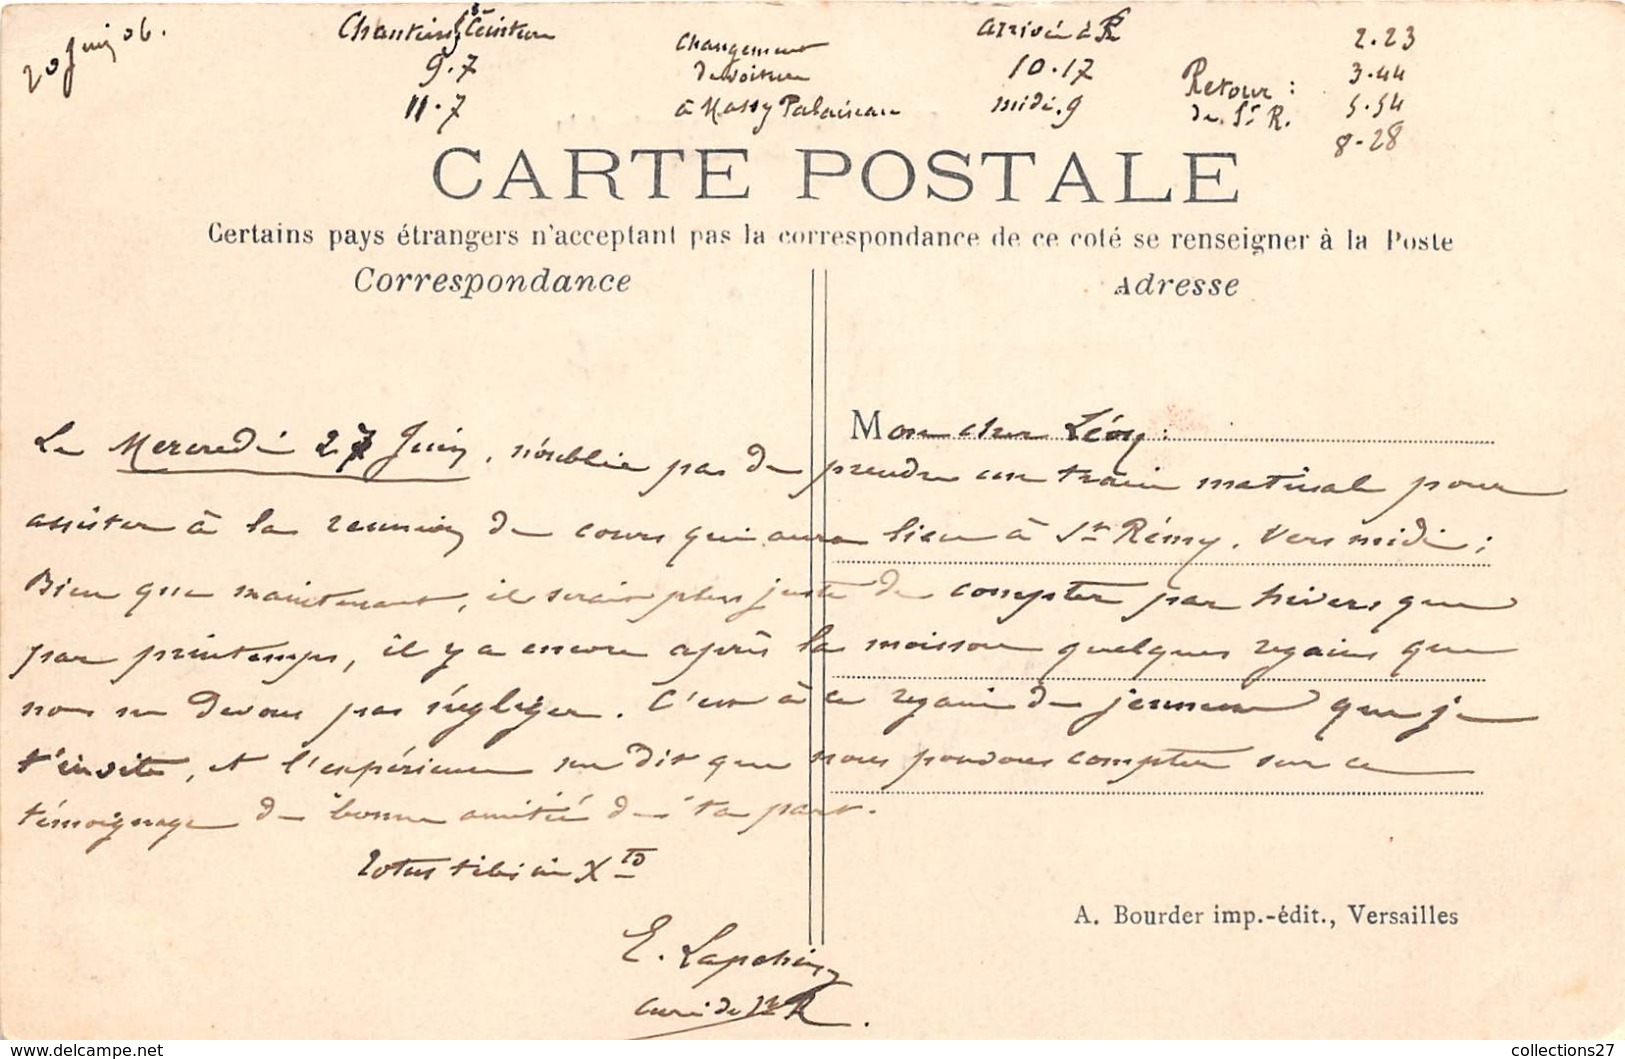 20 Juin 06.
Chantiers Ceinture
9.7
11.7
Changement
de voiture
à Massy Palaiseau
arrivée à St R
10.17
midi.9
Retour :
de St R.
2.23
3.44
5.54
8-28
CARTE POSTALE
Certains pays étrangers n'acceptant pas la correspondance de ce coté se renseigner à la Poste
Correspondance
Adresse
Mon cher Léon:
Le Mercredi 27 Juin, n'oublie pas de prendre un train matinal pour
assister à la reunion de cours qui aura lieu à St Rémy, vers midi;
Bien que maintenant, il serait plus juste de compter par hivers que
par printemps, il y a encore après la moisson quelques regains que
nous ne devons pas négliger. C'est à ce regain de jeunesse que je
t'invite, et l'expérience me dit que nous pouvons compter sur ce
témoignage de bonne amitié de ta part.
totus tibi in Xto
E.
curé de St R.
A. Bourder imp.-édit., Versailles
collections27